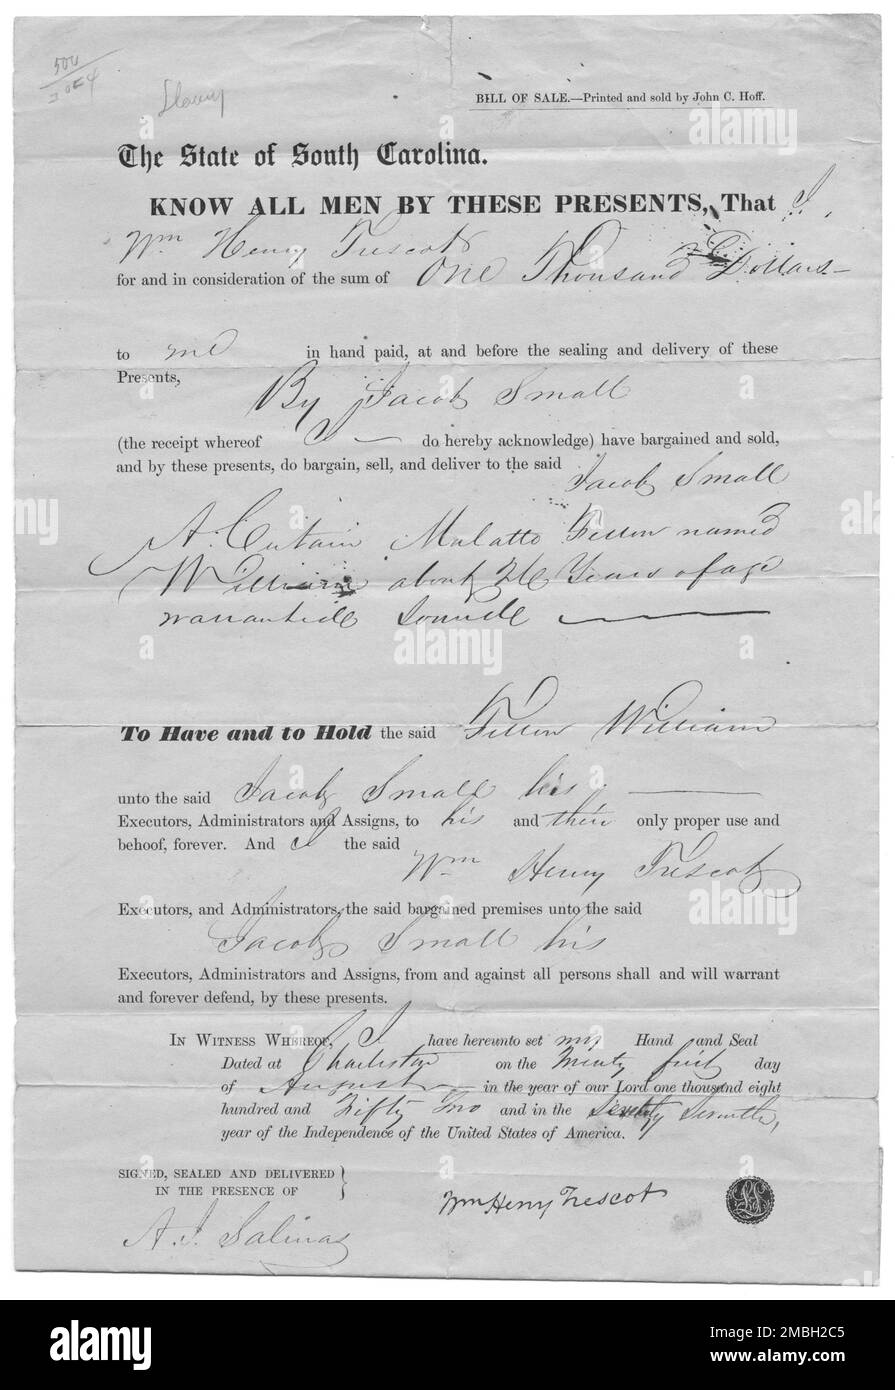 500
Slavery
BILL OF SALE.—Printed and sold by John C. Hoff.
The State of South Carolina.
KNOW ALL MEN BY THESE PRESENTS, That I,
Wm Henry Trescot
for and in consideration of the sum of One Thousand Dollars—
to me in hand paid, at and before the sealing and delivery of these
Presents,
By Jacob Small
(the receipt whereof I — do hereby acknowledge) have bargained and sold,
and by these presents, do bargain, sell, and deliver to the said
Jacob Small
A Certain Malatto Fellow named
William about Years of age
Sound
To Have and to Hold the said Fellow William
unto the said Jacob Small his
Executors, Administrators and Assigns, to his and their only proper use and
behoof, forever. And I the said
Wm Henry Trescot
Executors, and Administrators, the said bargained premises unto the said
Jacob Small his
Executors, Administrators and Assigns, from and against all persons shall and will warrant
and forever defend, by these presents.
IN WITNESS WHEREOF, I have hereunto set my Hand and Seal
Dated at Charleston on the Twenty first day
of August in the year of our Lord one thousand eight
hundred and Fifty Two and in the Seventy Seventh,
year of the Independence of the United States of America.
SIGNED, SEALED AND DELIVERED }
IN THE PRESENCE OF
Wm Henry Trescot
LS
A. J. Salinas
alamy
Image ID: 2MBH2C5
www.alamy.com